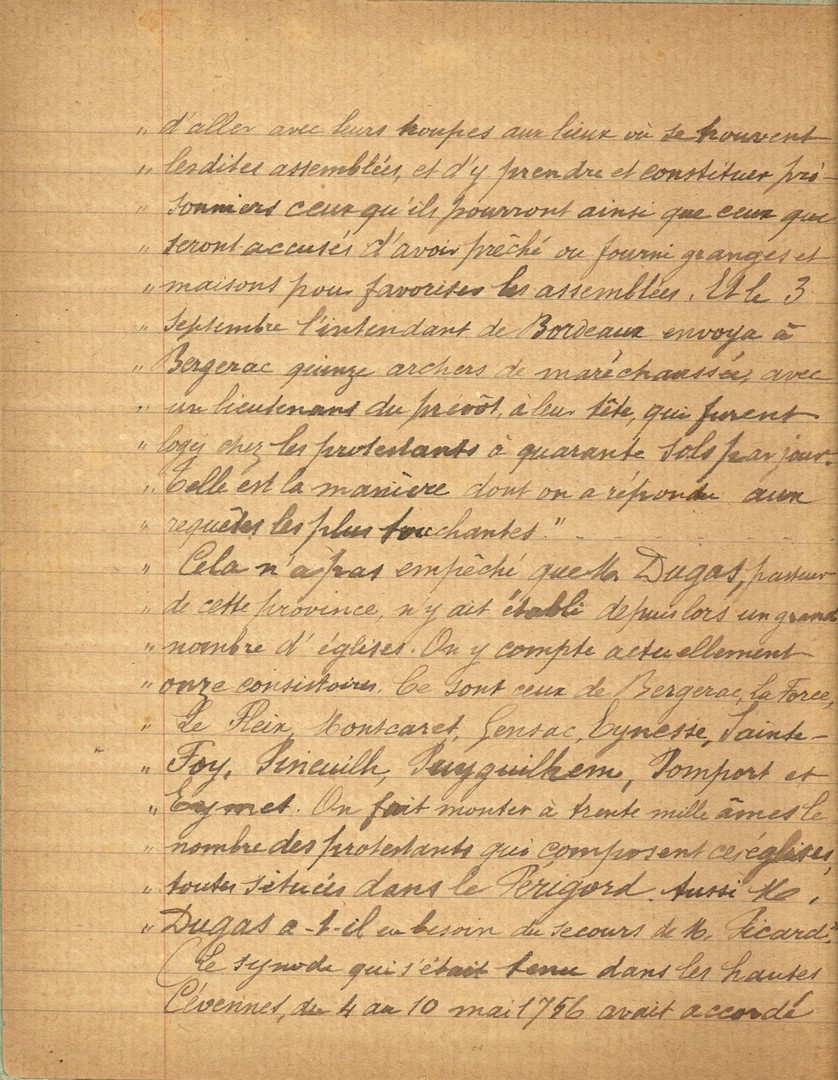 „ d'aller avec leurs troupes aux lieux où se trouvent
„ lesdites assemblées, et d'y prendre et constituer pri-
„ sonniers ceux qu'ils pourront ainsi que ceux que
„ seront accusés d'avoir prêché ou fourni granges et
„ maisons pour favoriser les assemblées. Et le 3
„ septembre l'intendant de Bordeaux envoya à
„ Bergerac quinze archers de maréchaussée, avec
„ un lieutenant du prévôt, à leur tête, qui furent
„ logés chez les protestants à quarante sols par jour.
„ Telle est la manière dont on a répondu aux
„ requêtes les plus touchantes."
„ Cela n'a pas empêché que M. Dugas, pasteur
„ de cette province, n'y ait établi depuis lors un grand
„ nombre d'églises. On y compte actuellement
„ onze consistoires. Ce sont ceux de Bergerac, la Force,
„ Le Fleix, Montcaret, Gensac, Eynesse, Sainte-
„ Foy, Pineuilh, Puyguilhem, Pomport et
„ Eymet. On fait monter à trente mille âmes le
„ nombre des protestants qui composent ces églises,
„ toutes situées dans le Périgord. Aussi M.
„ Dugas a-t-il eu besoin du secours de M. Picard."
Le synode qui s'était tenu dans les hautes
Cévennes, du 4 au 10 mai 1756 avait accordé